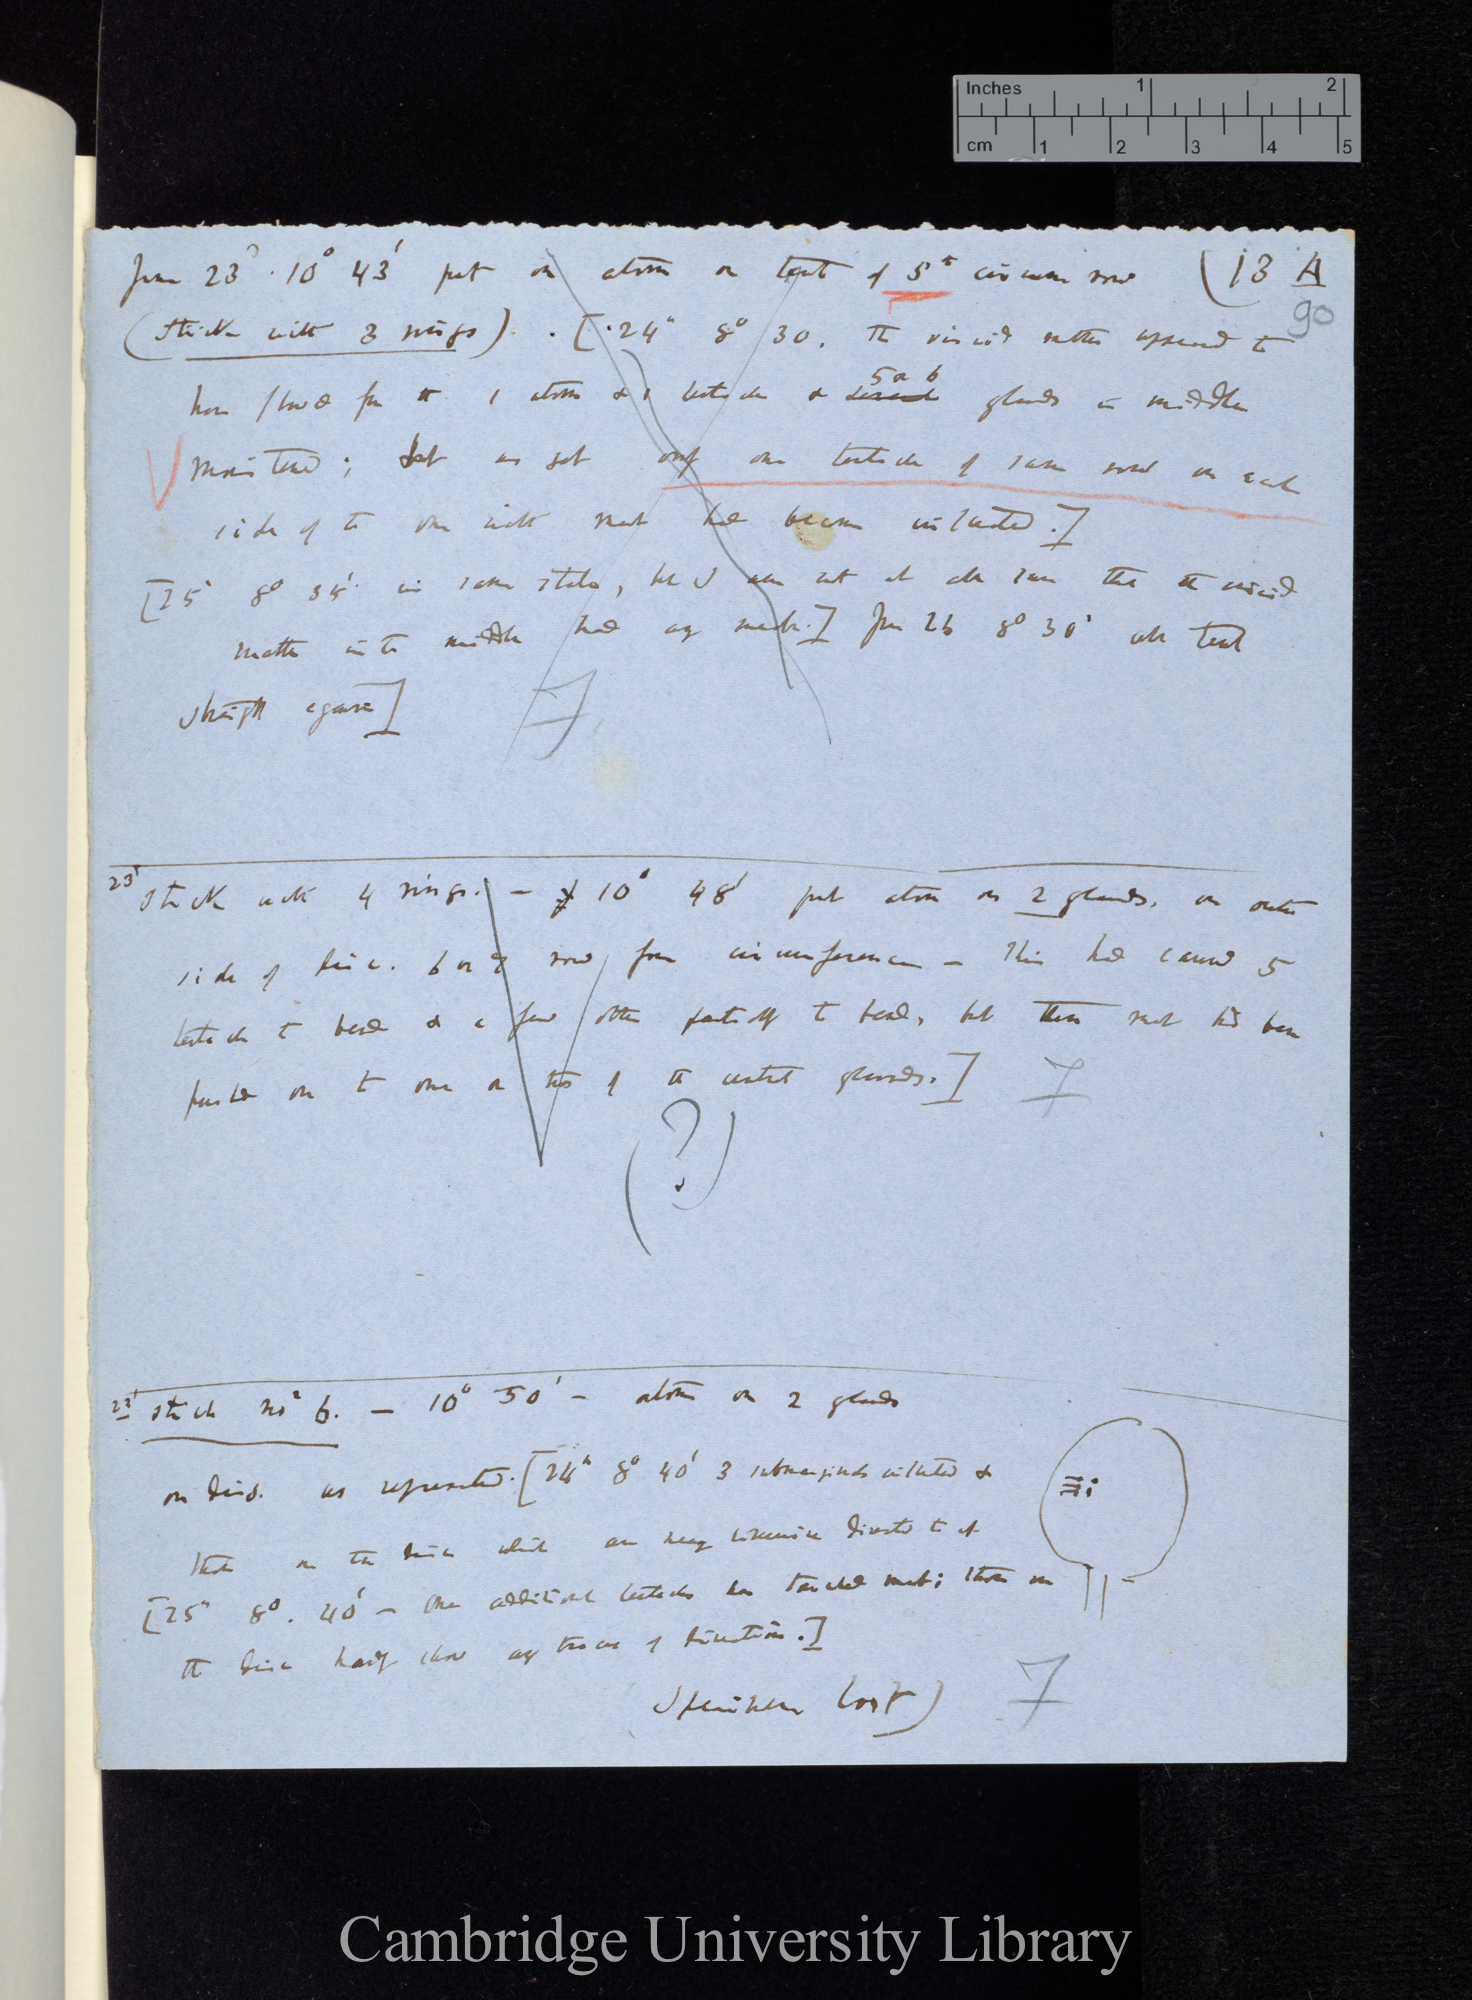 Inches 1 2
cm 1 2 3 4 5
June 23 · 10° 43' put an atom on tent of 5th circum row (13 A
90
(Stick with 3 rings). [24th 8° 30. The viscid matter appeared to
have flowed from the 1 atom & 1 tentacle & 5 or 6 glands in middle
moistened; but as yet only one tentacle of same row on each
side of the one with meat had become inflected.]
[25th 8° 35' in same state, but I am not at all sure that the viscid
matter in the middle had any meat.] June 26 8° 30' all tent
straight again]
7
23d Stick with 4 rings. — 10° 48' put atom on 2 glands, on outer
side of disc. 6 or 7 row from circumference — This had caused 5
tentacles to bend & a few others partially to bend, but then meat had been
pushed on to one or two of the central glands.]
7
(?)
23d Stick no 6. — 10° 50' — atom on 2 glands
on disc. as represented. [24th 8° 40' 3 submarginals inflected &
those on the disc which are near likewise directed to it
[25th 8°. 40' — One additional tentacle has touched meat; those on
the disc hardly show any traces of direction.]
Specimen lost)
7
Cambridge University Library